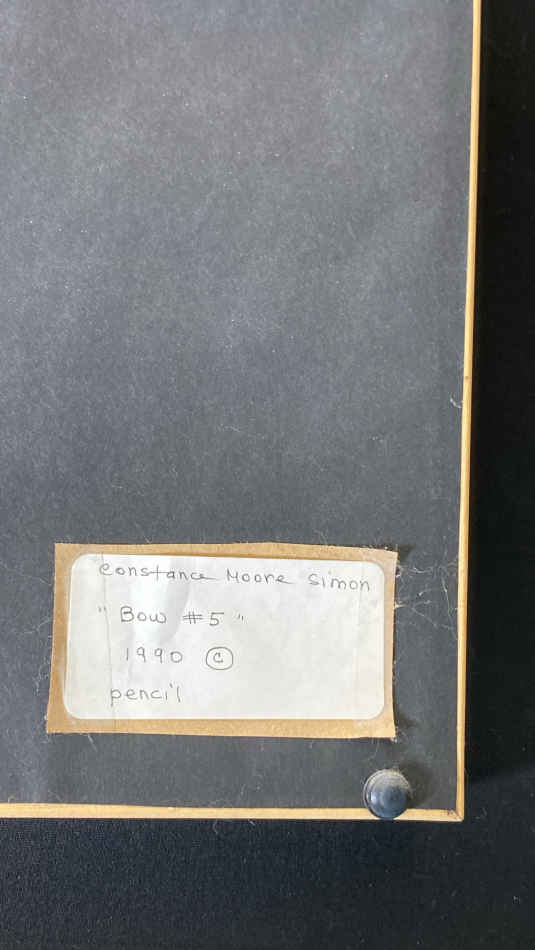 Constance Moore Simon
"Bow #5"
1990 ©
pencil